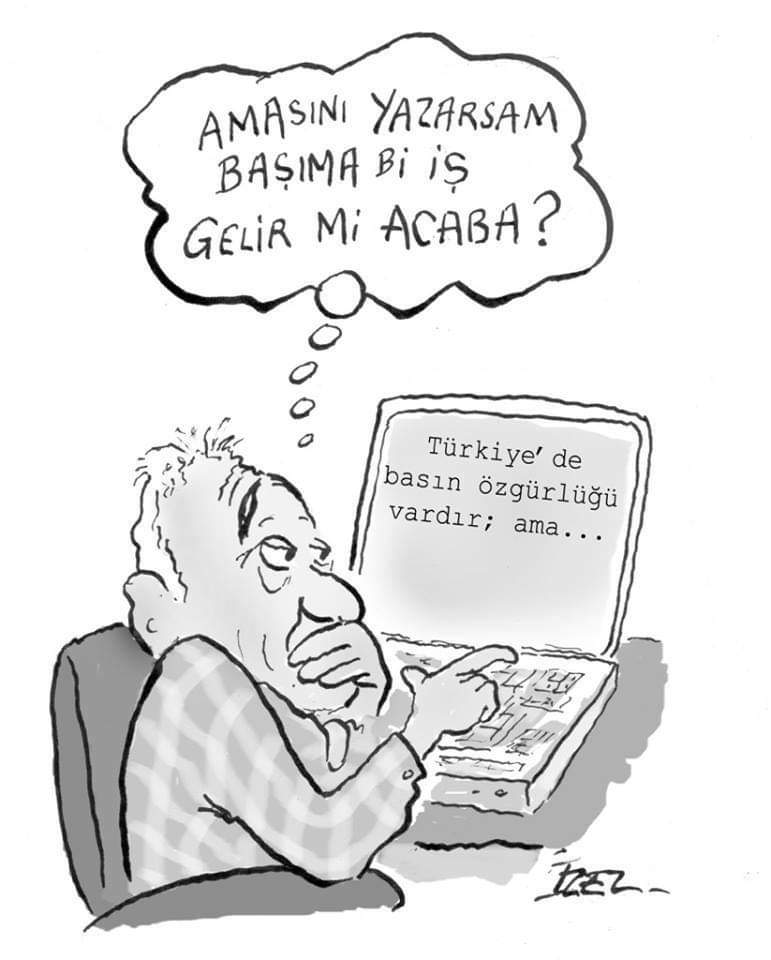 AMASINI YAZARSAM
BAŞIMA Bİ İŞ
GELİR Mİ ACABA?
Türkiye'de
basın özgürlüğü
vardır; ama...
İZEL